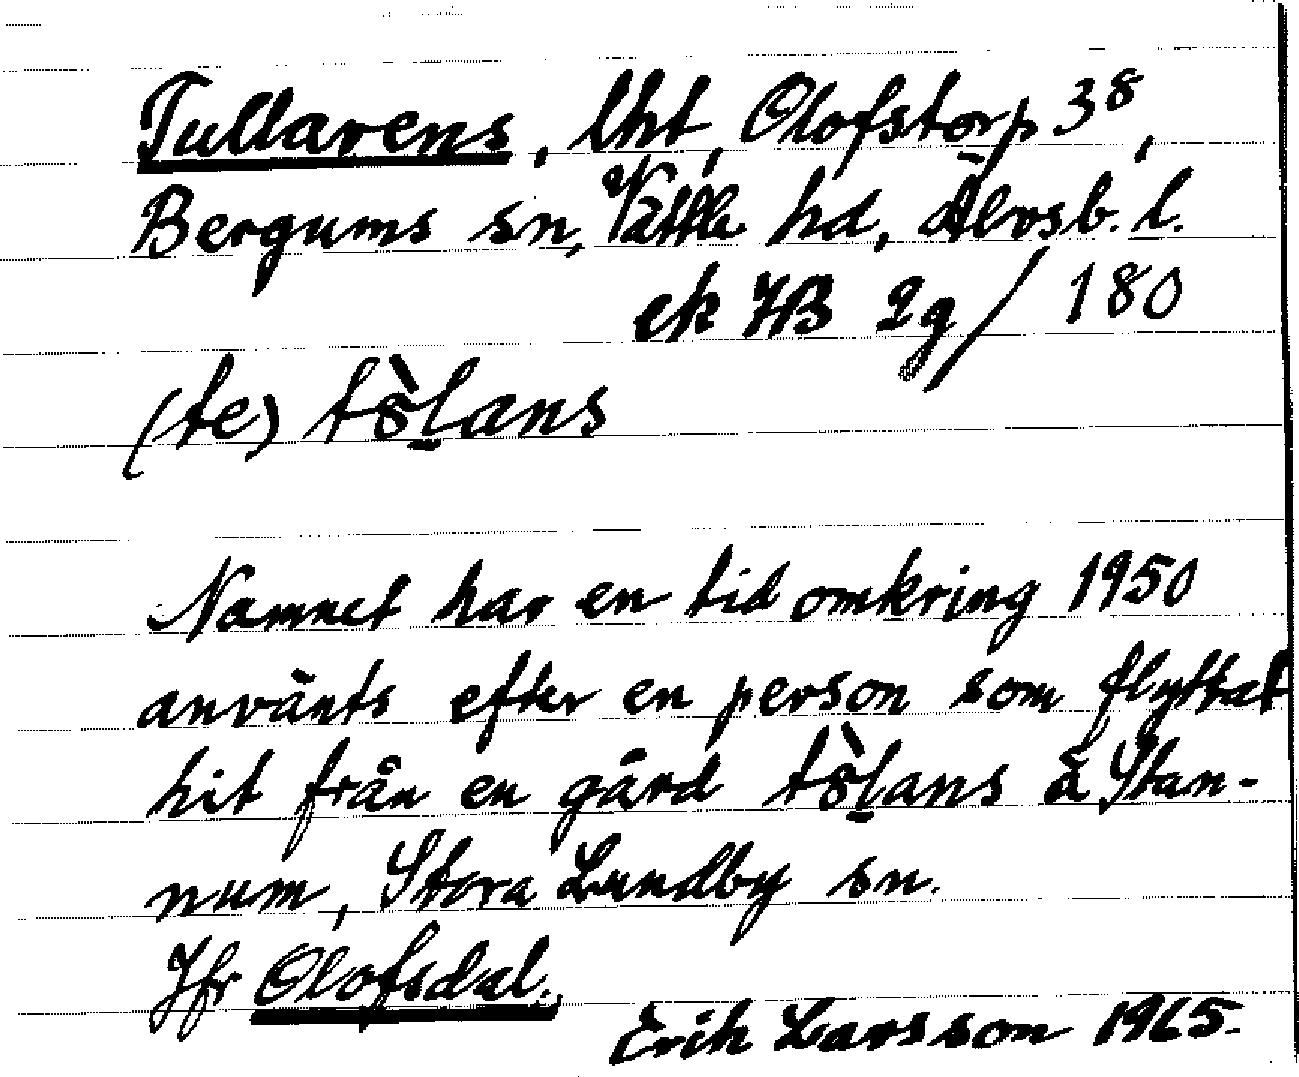 Tullarens, lht, Olofstorp 3⁸,
Bergums sn, Vättle hd, Älvsb. l.
ek HB 2g/180
(te) tò̤l̲ans
Namnet har en tid omkring 1950
använts efter en person som flyttat
hit från en gård tò̤l̲ans å Stan-
num, Stora Lundby sn.
Jfr Olofsdal.
Erik Larsson 1965.